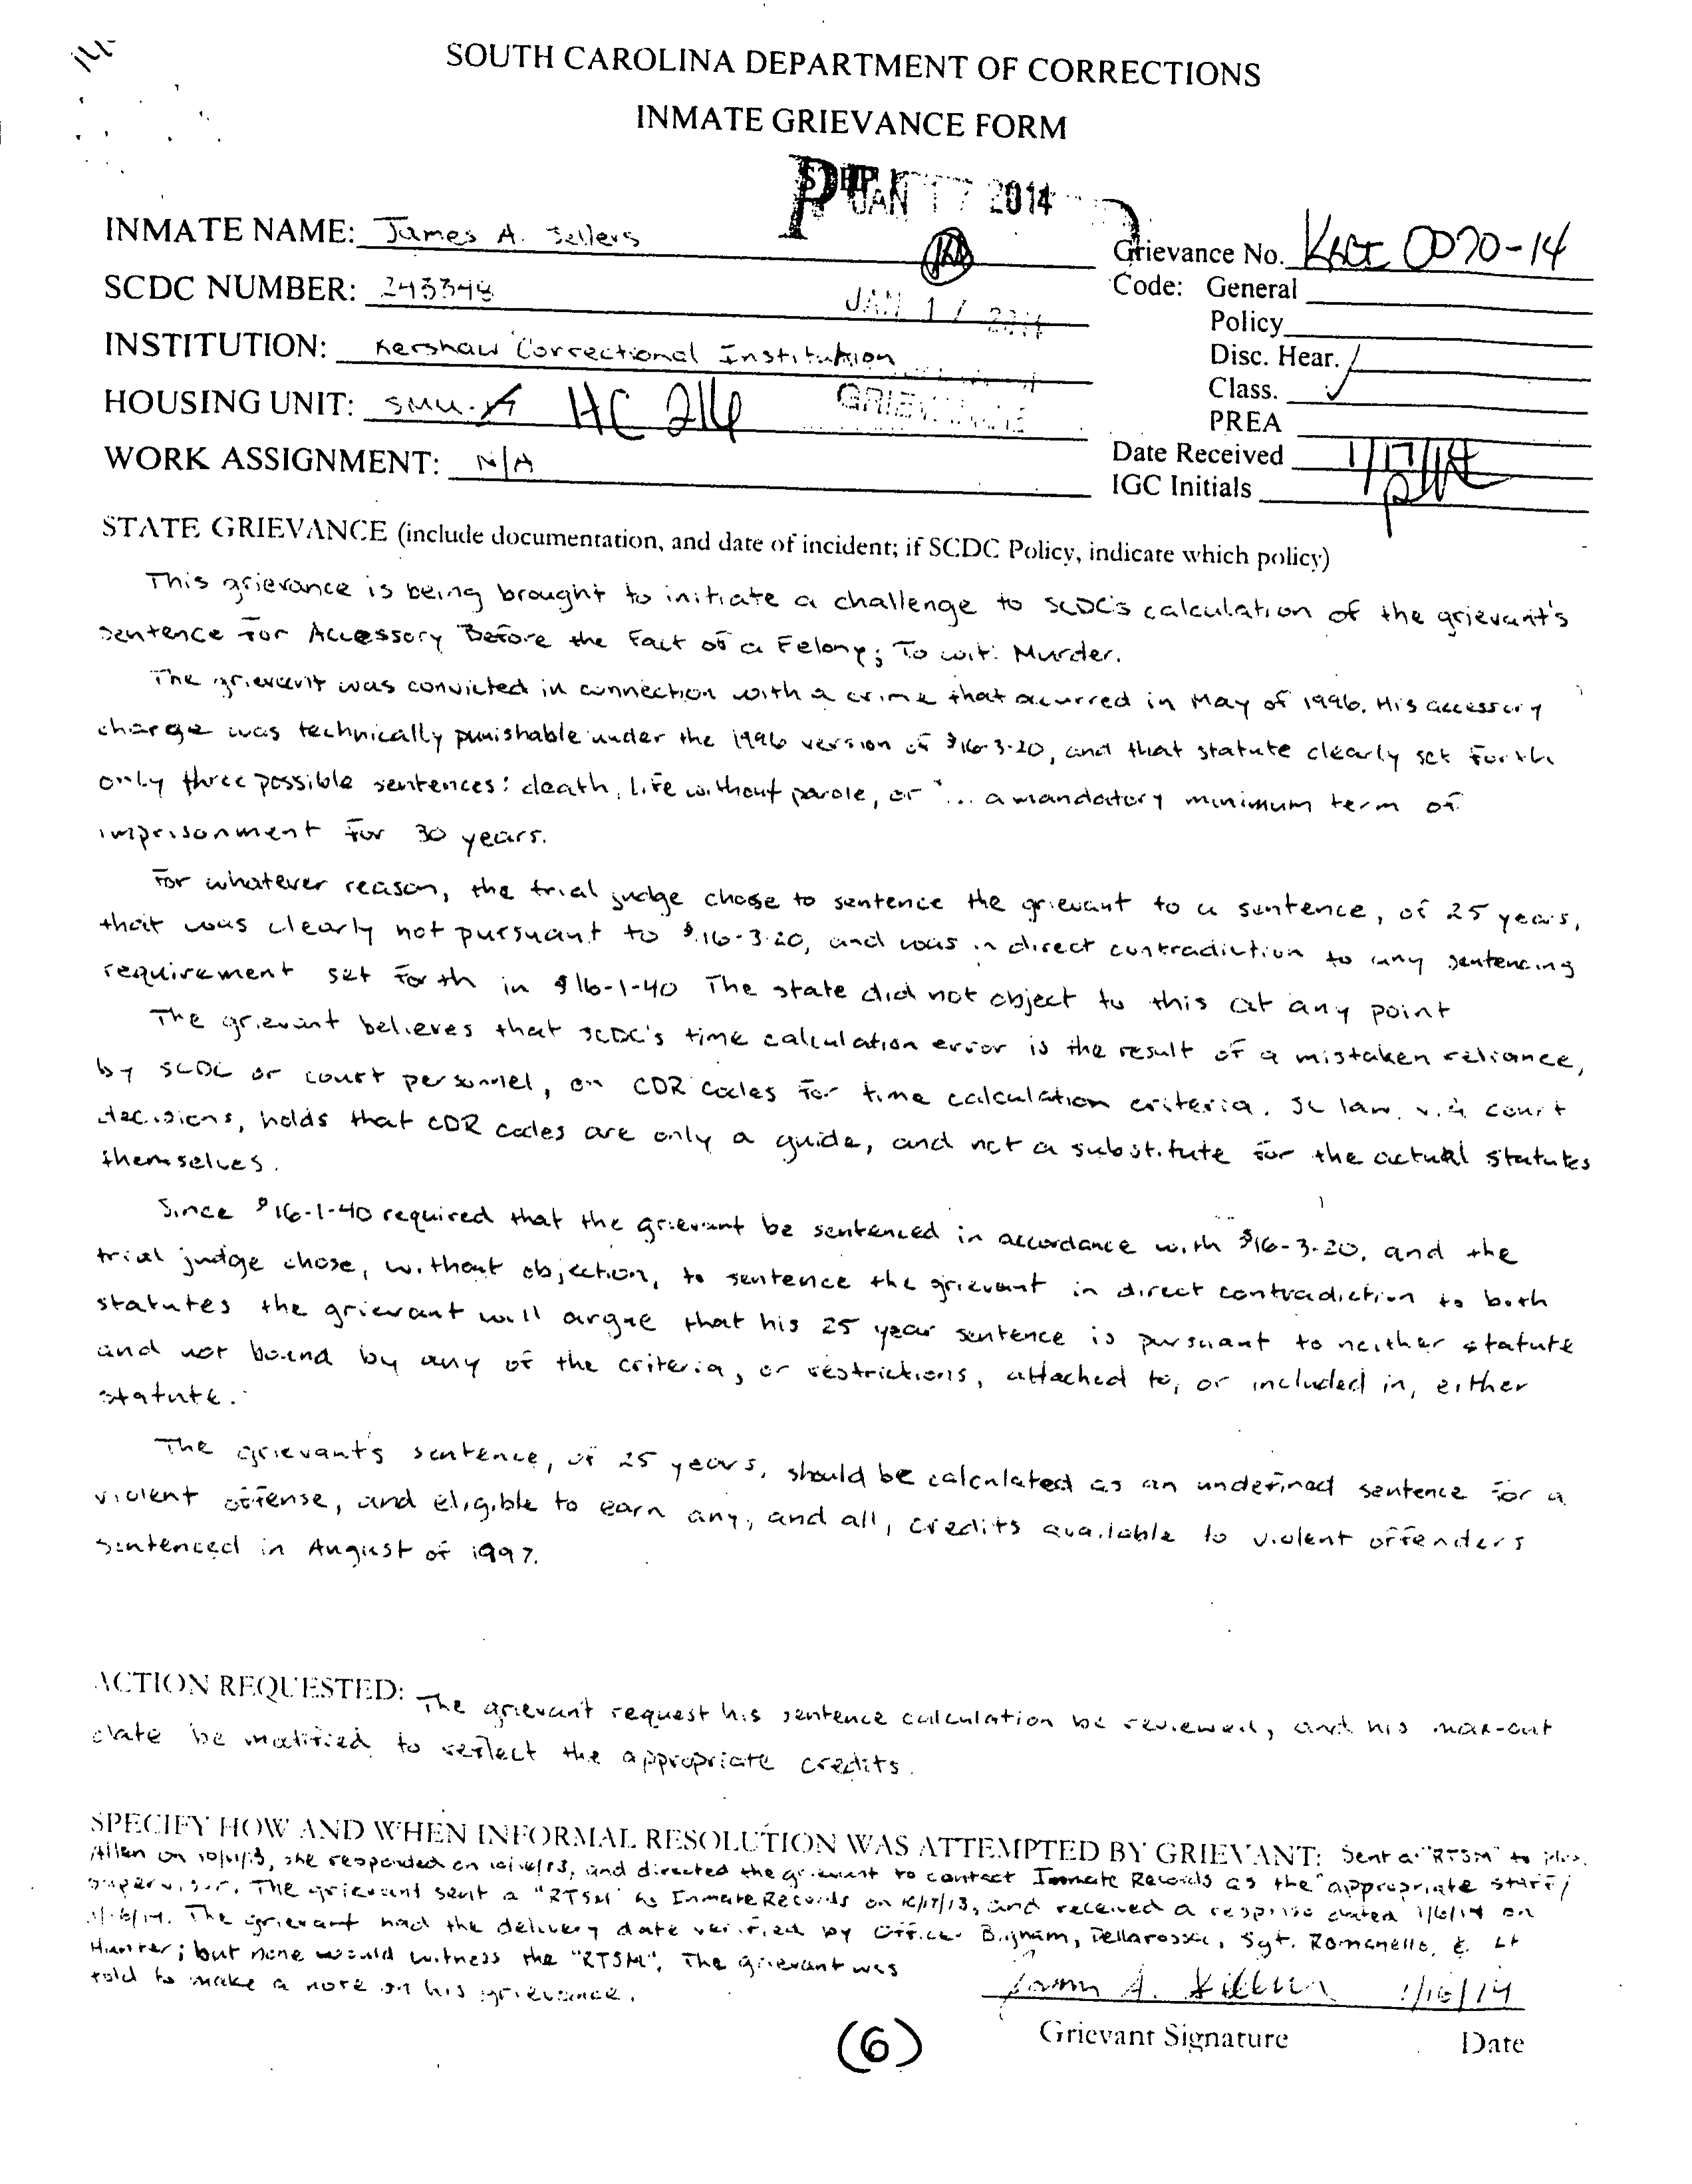 SOUTH CAROLINA DEPARTMENT OF CORRECTIONS
INMATE GRIEVANCE FORM
JAN 17 2014
INMATE NAME: James A. Sellers
Grievance No. 0070-14
SCDC NUMBER:
Code: General
JAN 17
Policy
INSTITUTION: Kershaw Correctional Institution
Disc. Hear.
Class. ✓
HOUSING UNIT: SMU- HC 214
GRIEVANCE
PREA
WORK ASSIGNMENT: N/A
Date Received 1/17/14
IGC Initials
STATE GRIEVANCE (include documentation, and date of incident; if SCDC Policy, indicate which policy)
This grievance is being brought to initiate a challenge to SCDC's calculation of the grievant's
sentence for Accessory Before the Fact of a Felony; To wit: Murder.
The grievant was convicted in connection with a crime that occurred in May of 1996. His accessory
charge was technically punishable under the 1996 version of §16-3-20, and that statute clearly set forth
only three possible sentences: death, life without parole, or "... a mandatory minimum term of
imprisonment for 30 years.
For whatever reason, the trial judge chose to sentence the grievant to a sentence, of 25 years,
that was clearly not pursuant to §16-3-20, and was in direct contradiction to any sentencing
requirement set forth in §16-1-40 The state did not object to this at any point
The grievant believes that SCDC's time calculation error is the result of a mistaken reliance,
by SCDC or court personnel, on CDR codes for time calculation criteria. SC law, via court
decisions, holds that CDR codes are only a guide, and not a substitute for the actual statutes
themselves.
Since §16-1-40 required that the grievant be sentenced in accordance with §16-3-20, and the
trial judge chose, without objection, to sentence the grievant in direct contradiction to both
statutes the grievant will argue that his 25 year sentence is pursuant to neither statute
and not bound by any of the criteria, or restrictions, attached to, or included in, either
statute.
The grievant's sentence, of 25 years, should be calculated as an undefined sentence for a
violent offense, and eligible to earn any, and all, credits available to violent offenders
sentenced in August of 1997.
ACTION REQUESTED: The grievant request his sentence calculation be reviewed, and his max-out
date be modified to reflect the appropriate credits.
SPECIFY HOW AND WHEN INFORMAL RESOLUTION WAS ATTEMPTED BY GRIEVANT: Sent a "RTSM" to
Allen on she responded on and directed the grievant to contact Inmate Records as the "appropriate staff/
supervisor. The grievant sent a "RTSM" to Inmate Records on and received a response dated 1/6/14 on
The grievant had the delivery date verified by Officer Bignam, Sgt. Romanello, & Lt
Hunter; but none would witness the "RTSM". The grievant was
told to make a note on his grievance.
James A. Sellers 1/16/14
Grievant Signature Date
(6)